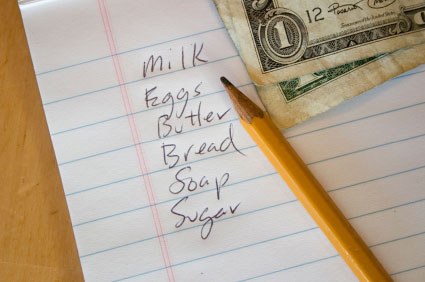 Milk
Eggs
Butter
Bread
Soap
Sugar
12
1